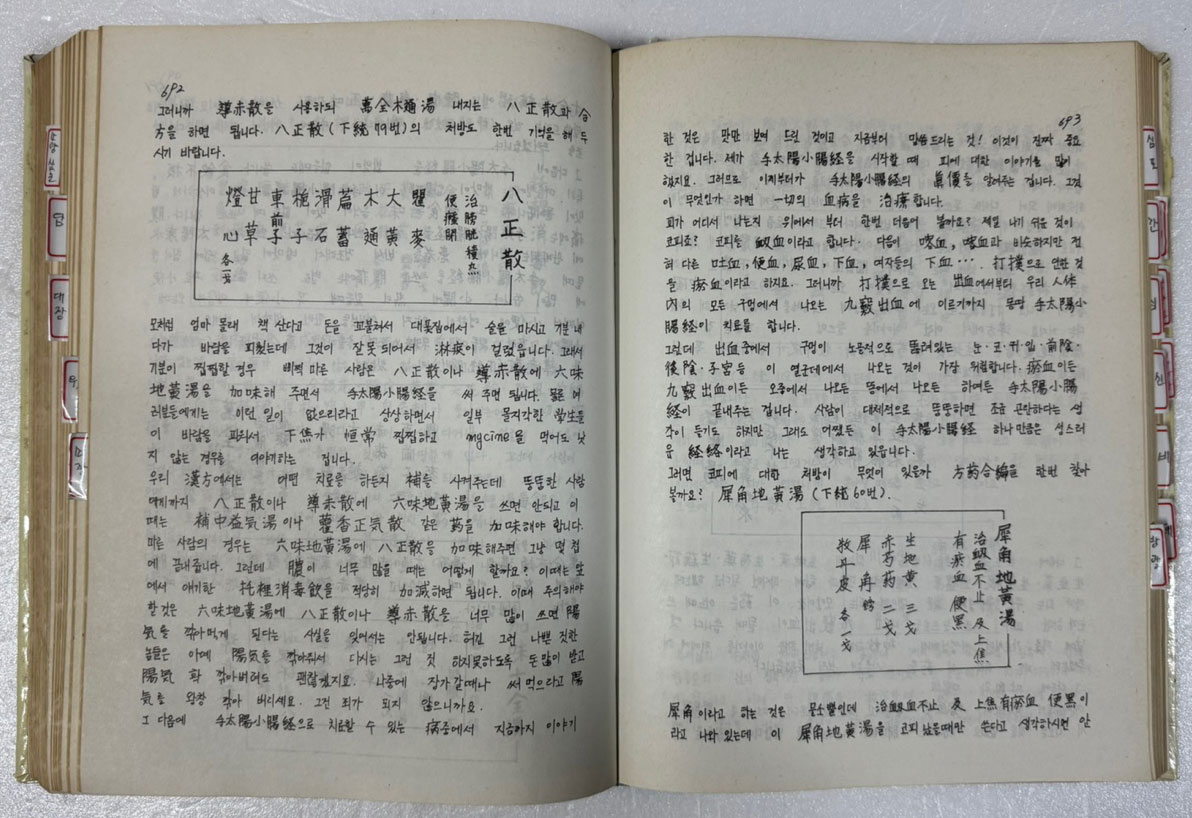 692
그러니까 導赤散을 사용하되 萬全木通湯 내지는 八正散과 合
方을 하면 됩니다. 八正散(下統 79番)의 처방도 한번 기억을 해 두
시기 바랍니다.
八正散
治膀胱積熱
便癃閉
瞿麥
大黃
木通
萹蓄
滑石
梔子
車前子
甘草
燈心 各一戔
모처럼 엄마 몰래 책 산다고 돈을 꼬불쳐서 대폿집에서 술을 마시고 기분 내
다가 바람을 피웠는데 그것이 잘못 되어서 淋疾이 걸렸읍니다. 그래서
기분이 찝찝할 경우 삐쩍 마른 사람은 八正散이나 導赤散에 六味
地黃湯을 加味해 주면서 手太陽小腸経을 써 주면 됩니다. 물론 여
러분들에게는 이런 일이 없으리라고 상상하면서 일부 몰지각한 학생들
이 바람을 피워서 下焦가 恒常 찝찝하고 mycine을 먹어도 낫
지 않는 경우를 이야기하는 겁니다.
우리 漢方에서는 어떤 치료를 하든지 補를 시켜주는데 뚱뚱한 사람
에게까지 八正散이나 導赤散에 六味地黃湯을 쓰면 안되고 이
때는 補中益気湯이나 藿香正気散 같은 药을 加味해야 합니다.
마른 사람의 경우는 六味地黃湯에 八正散을 加味해주면 그냥 몇 첩
에 끝내줍니다. 그런데 膿이 너무 많을 때는 어떻게 할까요? 이때는 앞
에서 얘기한 托裡消毒飮을 적당히 加減하면 됩니다. 이때 주의해야
할것은 六味地黃湯에 八正散이나 導赤散을 너무 많이 쓰면 陽
気를 깎아먹게 된다는 사실을 잊어서는 안됩니다. 하긴 그런 나쁜 짓한
놈들은 아예 陽気를 깎아줘서 다시는 그런 짓 하지못하도록 돈많이 받고
陽気 확 깎아버려도 괜찮겠지요. 나중에 장가갈때나 써 먹으라고 陽
気를 왕창 깎아 버리세요. 그건 죄가 되지 않으니까요.
그 다음에 手太陽小腸経으로 치료할 수 있는 病중에서 지금까지 이야기
693
한 것은 맛만 보여 드린 것이고 지금부터 말씀드리는 것! 이것이 진짜 중요
한 겁니다. 제가 手太陽小腸経을 시작할 때 피에 대한 이야기를 많이
했지요. 그러므로 이제부터가 手太陽小腸経의 眞價를 알려주는 겁니다. 그것
이 무엇인가 하면 一切의 血病을 治療합니다.
피가 어디서 나는지 위에서 부터 한번 더듬어 볼까요? 제일 내기 쉬운 것이
코피죠? 코피를 衄血이라고 합니다. 다음이 喀血, 咳血과 비슷하지만 전
혀 다른 吐血, 便血, 尿血, 下血, 여자들의 下血…. 打撲으로 인한 것
을 瘀血이라고 하지요. 그러니까 打撲으로 오는 出血에서부터 우리 人体
內의 모든 구멍에서 나오는 九竅出血에 이르기까지 몽땅 手太陽小
腸経이 치료를 합니다.
그런데 出血중에서 구멍이 노골적으로 뚫려있는 눈·코·귀·입·前陰·
後陰·子宮 등 이 열군데에서 나오는 것이 가장 위험합니다. 瘀血이든
九竅出血이든 오줌에서 나오든 똥에서 나오든 하여튼 手太陽小腸
経이 끝내주는 겁니다. 사람이 대체적으로 뚱뚱하면 조금 곤란하다는 생
각이 들기도 하지만 그래도 어쨌든 이 手太陽小腸経 하나만큼은 성스러
운 経絡이라고 나는 생각하고 있읍니다.
그러면 코피에 대한 처방이 무엇이 있을까 方药合編을 한번 찾아
볼까요? 犀角地黃湯(下統 60번).
犀角地黃湯
治衄血不止 及上焦
有瘀血 便黑
生地黃 三戔
赤芍药 二戔
犀角鎊
牧丹皮 各一戔
犀角이라고 하는 것은 물소뿔인데 治衄血不止 及 上焦有瘀血 便黑이
라고 나와 있는데 이 犀角地黃湯을 코피 났을때만 쓴다고 생각하시면 안
담
대장
심포
간
신
비
방광